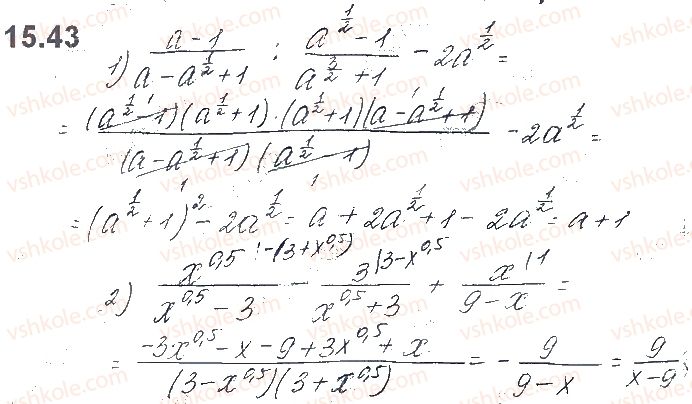 15.43
1) \frac{a-1}{a-a^{\frac{1}{2}}+1} : \frac{a^{\frac{1}{2}}-1}{a^{\frac{3}{2}}+1} - 2a^{\frac{1}{2}} =
= \frac{(a^{\frac{1}{2}}-1)(a^{\frac{1}{2}}+1)·(a^{\frac{1}{2}}+1)(a-a^{\frac{1}{2}}+1)}{(a-a^{\frac{1}{2}}+1)(a^{\frac{1}{2}}-1)} - 2a^{\frac{1}{2}} =
= (a^{\frac{1}{2}}+1)^2 - 2a^{\frac{1}{2}} = a + 2a^{\frac{1}{2}} + 1 - 2a^{\frac{1}{2}} = a + 1
2) \frac{x^{0,5 | -(3+x^{0,5})}}{x^{0,5}-3} - \frac{3 | 3-x^{0,5}}{x^{0,5}+3} + \frac{x | 1}{9-x} =
= \frac{-3x^{0,5} - x - 9 + 3x^{0,5} + x}{(3-x^{0,5})(3+x^{0,5})} = -\frac{9}{9-x} = \frac{9}{x-9}
vshkole.com